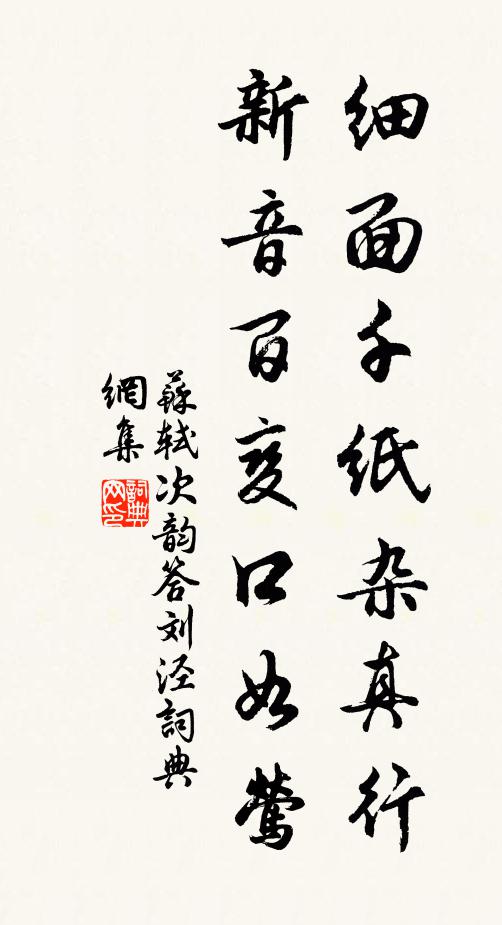 细面千纸杂真行
新音百变口如莺
蘇轼次韵答刘泾詞典
網集
詞典网印